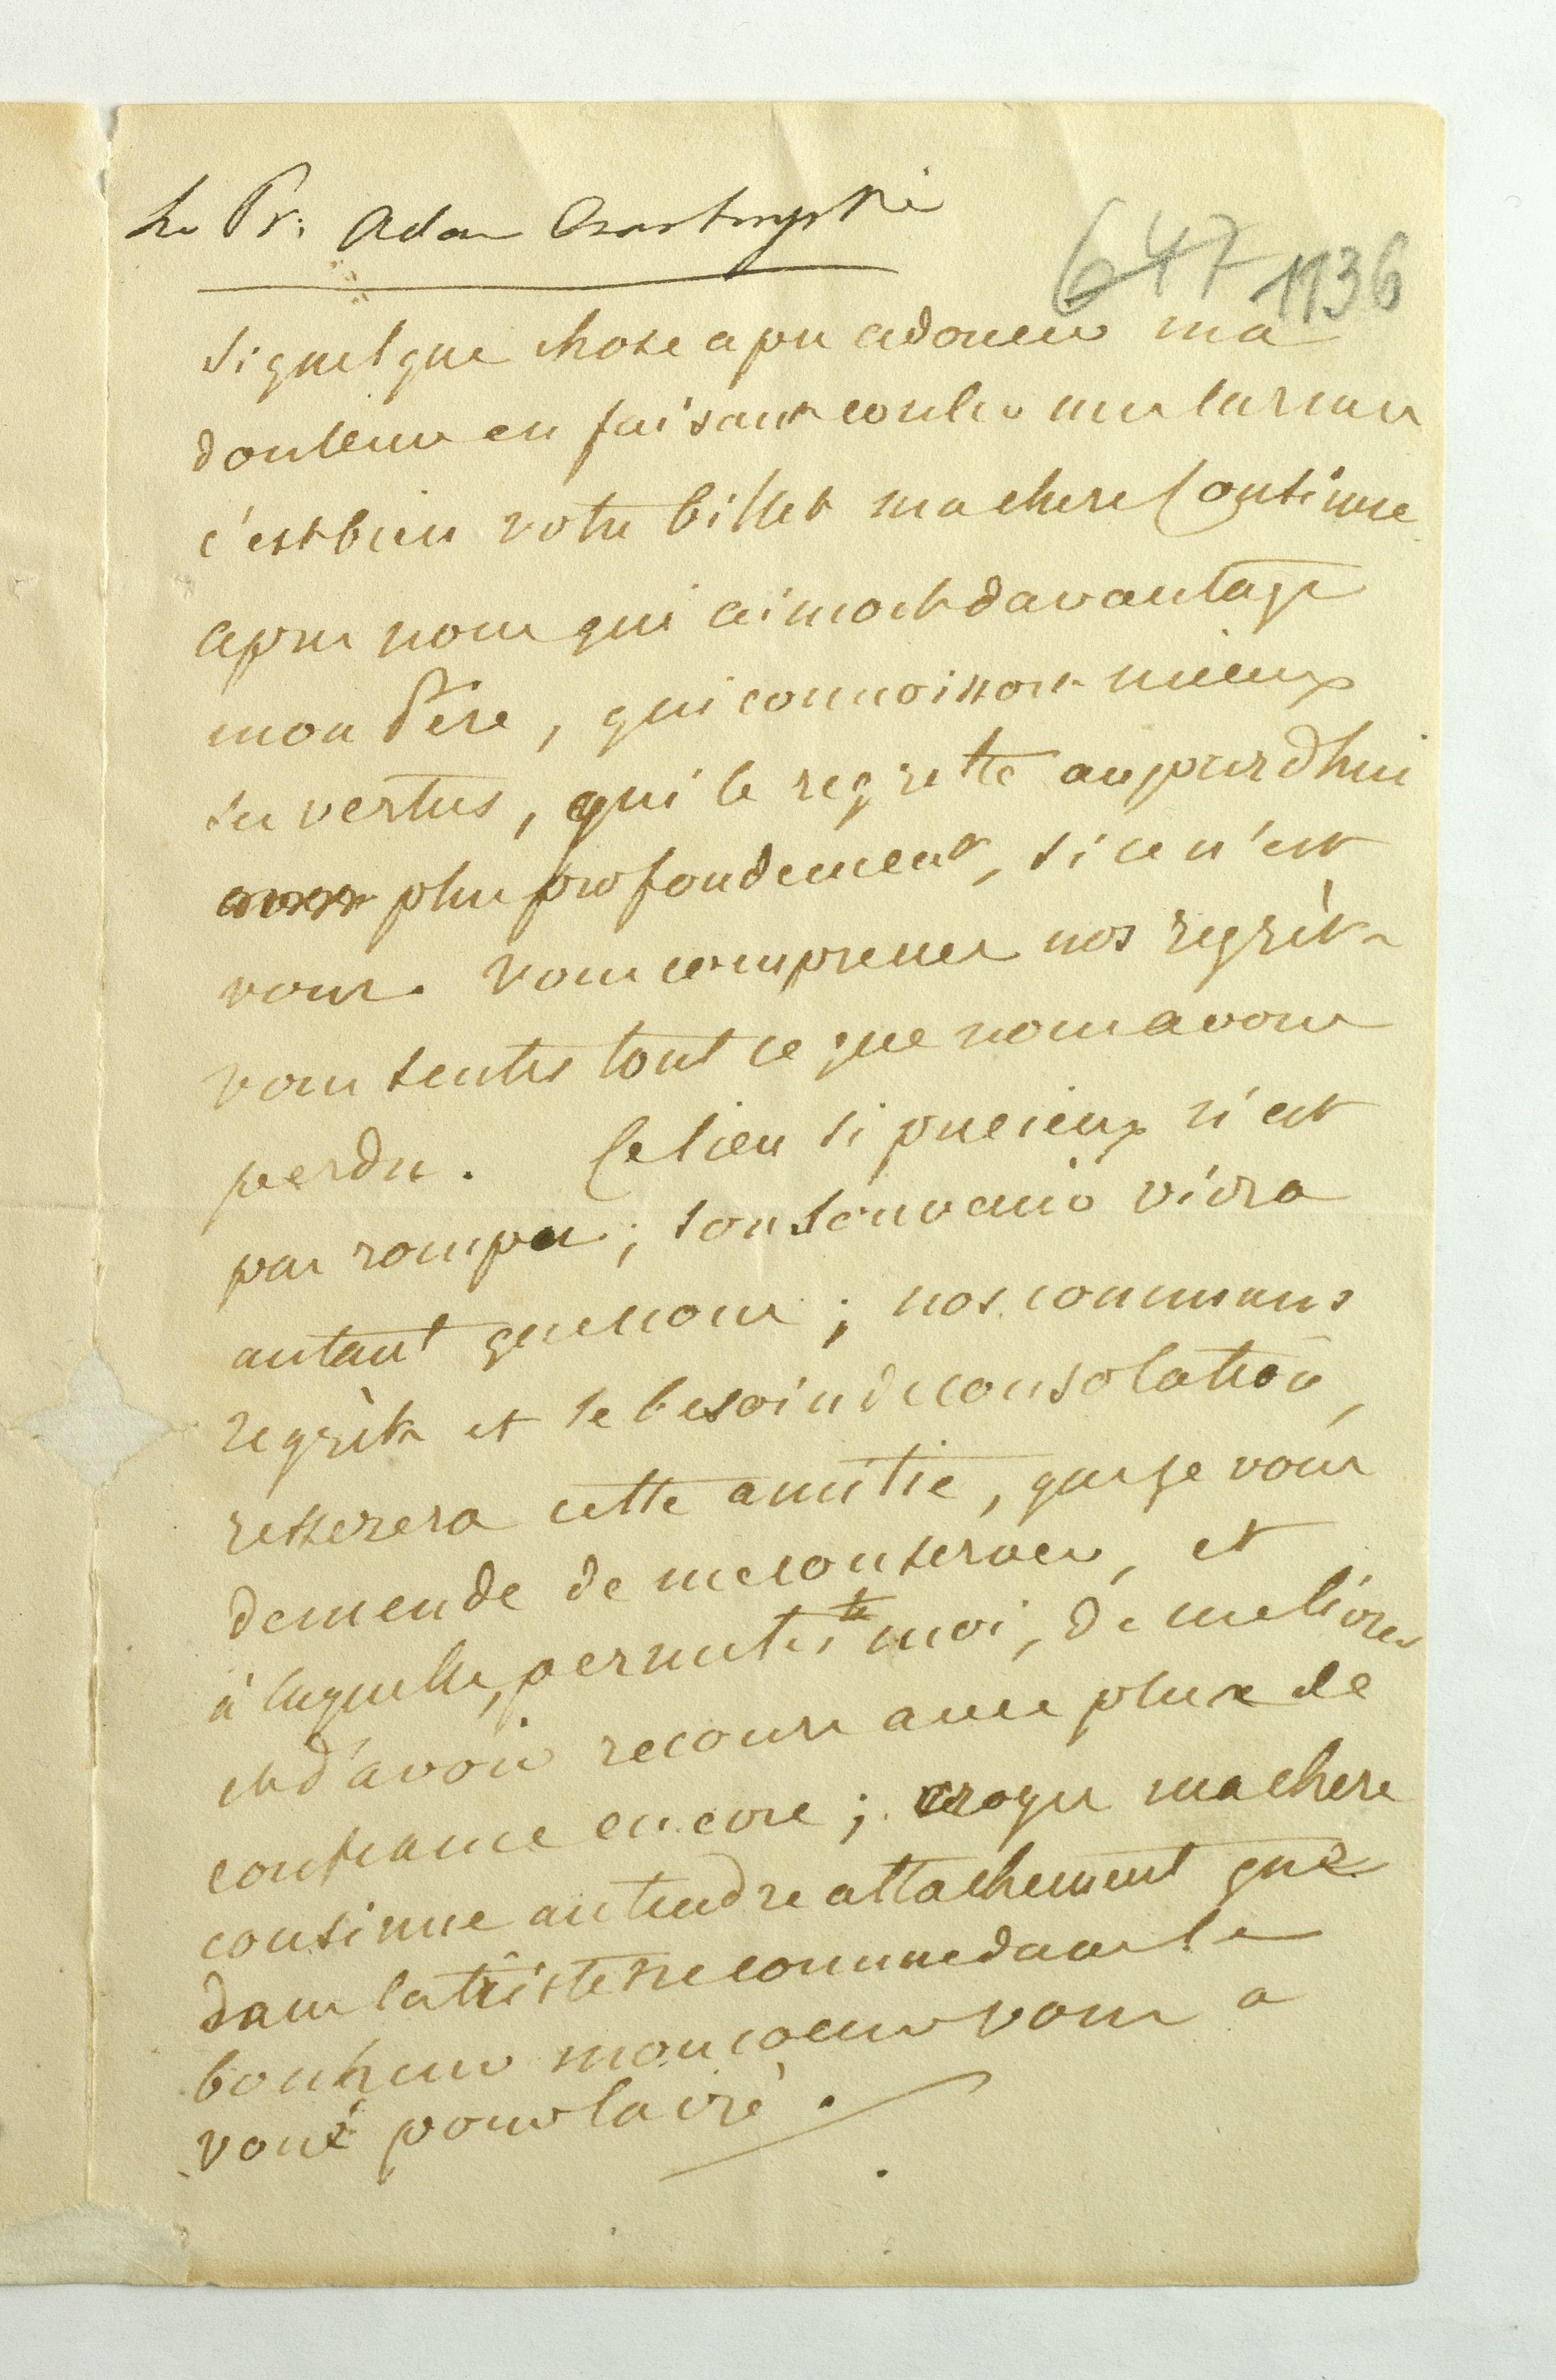 Le Pr: Adam Czartoryski
647 1136
si quelque chose a pu adoucir ma
douleur en faisant couler mes larmes
c'est bien votre billet ma chere Cousinne
apres nous qui aimoit davantage
mon Père, qui connoissoit mieux
ses vertus, qui le regrette aujourdhui
plus profondement, si ce n'est
vous. Vous comprenez nos regrèts
vous sentes tout ce que nous avons
perdu. Ce lien si precieux n'est
pas rompu; son souvenir vivra
autant que nous; nos communs
regrèts et le besoin de consolation,
resserera cette amitie, que je vous
demende de me conserver, et
à laquelle, permettes moi, de me livrer
et d'avoir recours avec plus de
confiance encore; croyes ma chere
cousinne au tendre attachement que
dans la tristesse comme dans le
bonheur mon coeur vous a
voué pour la vie.